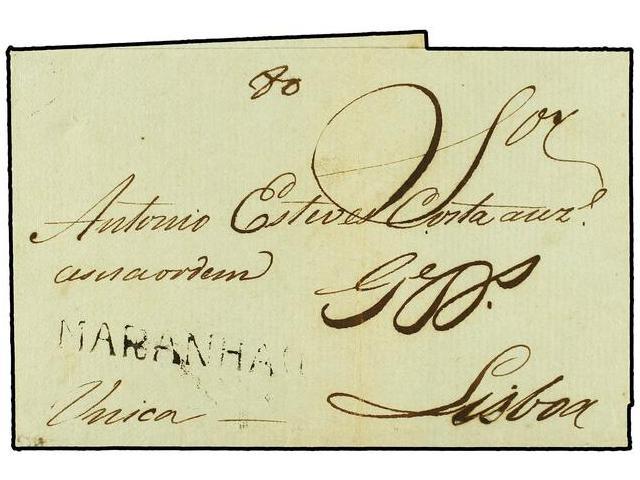 80
Sor
Antonio Esteves Costa auzᵉ
asuaordem
Gᵉ Dˢ
MARANHAO
Unica
Lisboa